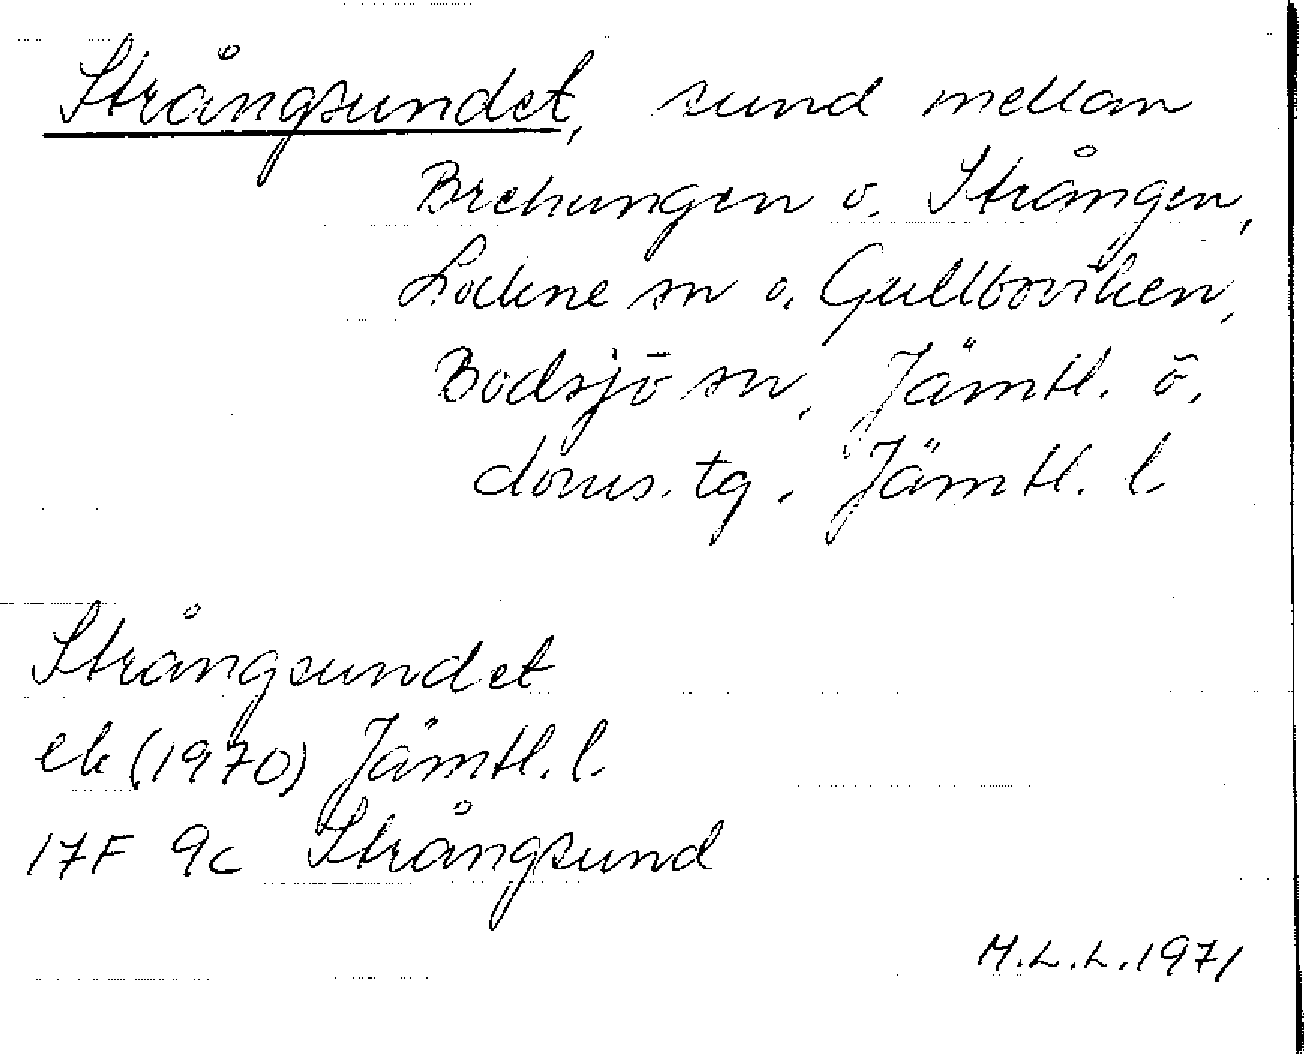 Strångsundet, sund mellan
Brekungen o. Strången,
Lockne sn o. Gullboviken,
Bodsjö sn, Jämtl. ö.
doms. tg. Jämtl. l.
Strångsundet
ek (1970) Jämtl. l.
17F 9c Strångsund
M.L.L. 1971